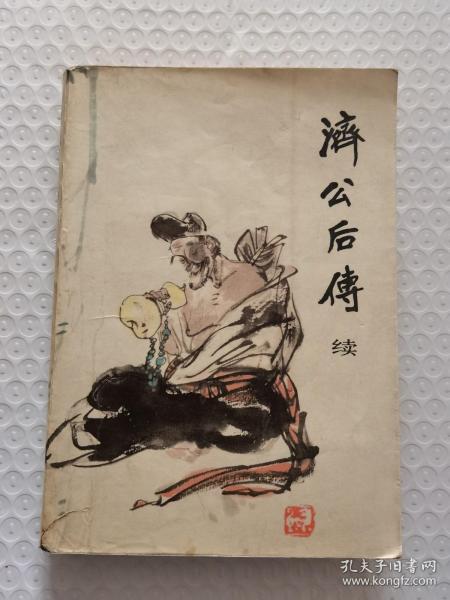 濟公后傳
续
孔夫子旧书网
www.kongfz.com